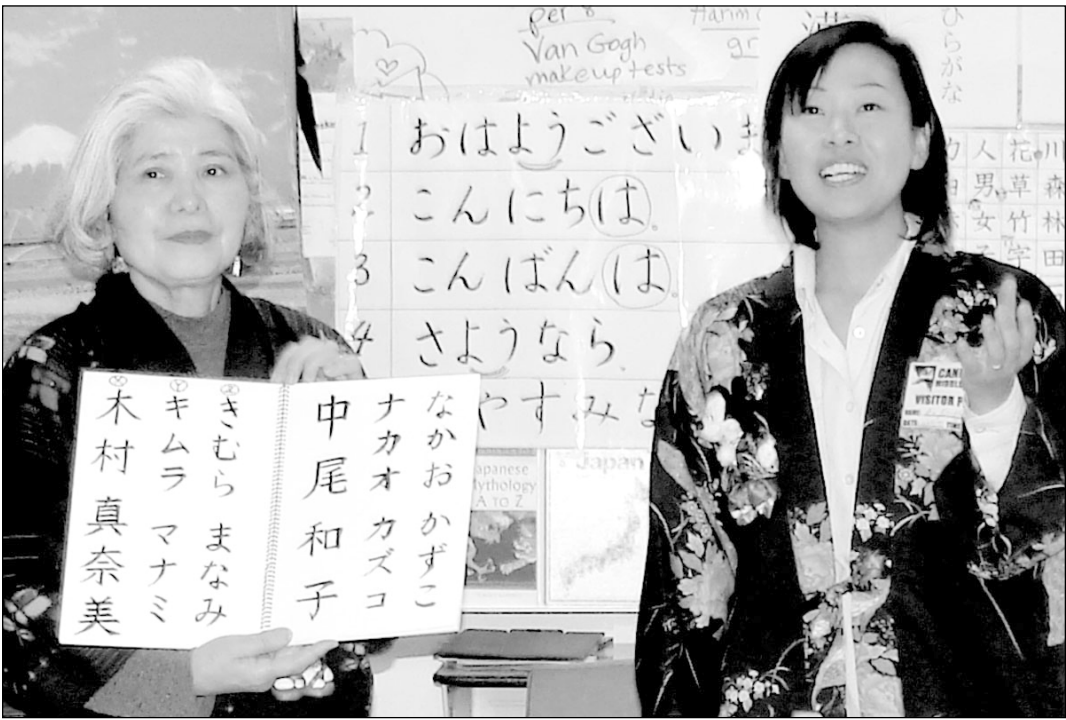 per 8
Van Gogh
makeup tests
ひらがな
1 おはようございま
2 こんにちは。
3 こんばんは。
4 さようなら。
やすみな
人 花 川
男 草 森
女 竹 林
字 田
なかお かずこ
ナカオ カズコ
中尾和子
きむら まなみ
キムラ マナミ
木村真奈美
Japanese
Mythology
A TO Z
Japan
CAN
MIDDL
VISITOR P
NAME:
DATE